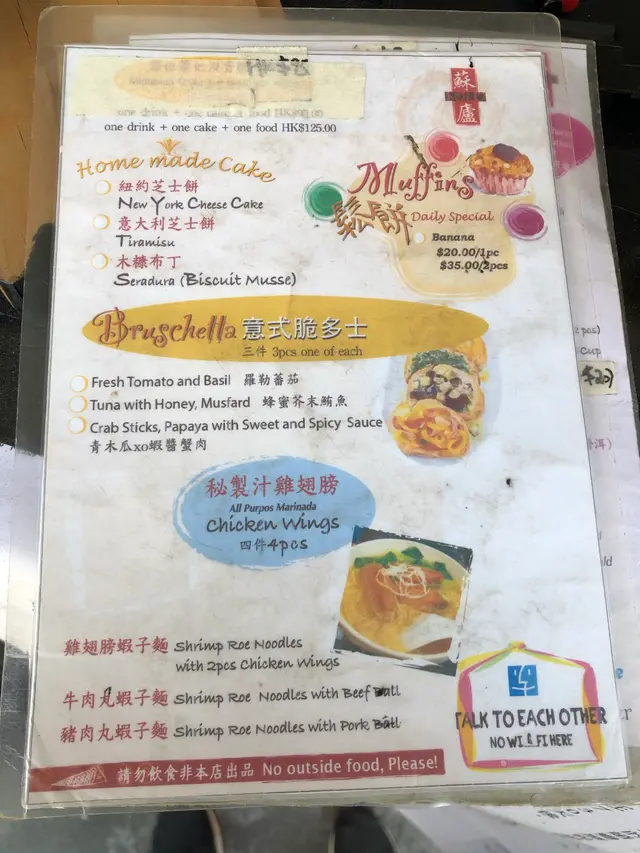 蘇
盧
one drink + one cake + one food HK$125.00
Home made Cake
紐約芝士餅
New York Cheese Cake
意大利芝士餅
Tiramisu
木糠布丁
Seradura (Biscuit Musse)
Muffins
鬆餅 Daily Special
Banana
$20.00/1pc
$35.00/2pcs
Bruschetta 意式脆多士
三件 3pcs one of each
Fresh Tomato and Basil 羅勒蕃茄
Tuna with Honey, Musfard 蜂蜜芥末鮪魚
Crab Sticks, Papaya with Sweet and Spicy Sauce
青木瓜xo蝦醬蟹肉
秘製汁雞翅膀
All Purpos Marinada
Chicken Wings
四件4pcs
雞翅膀蝦子麵 Shrimp Roe Noodles
with 2pcs Chicken Wings
牛肉丸蝦子麵 Shrimp Roe Noodles with Beef Ball
豬肉丸蝦子麵 Shrimp Roe Noodles with Pork Ball
TALK TO EACH OTHER
NO WI FI HERE
請勿飲食非本店出品 No outside food, Please!
pcs)
Cup